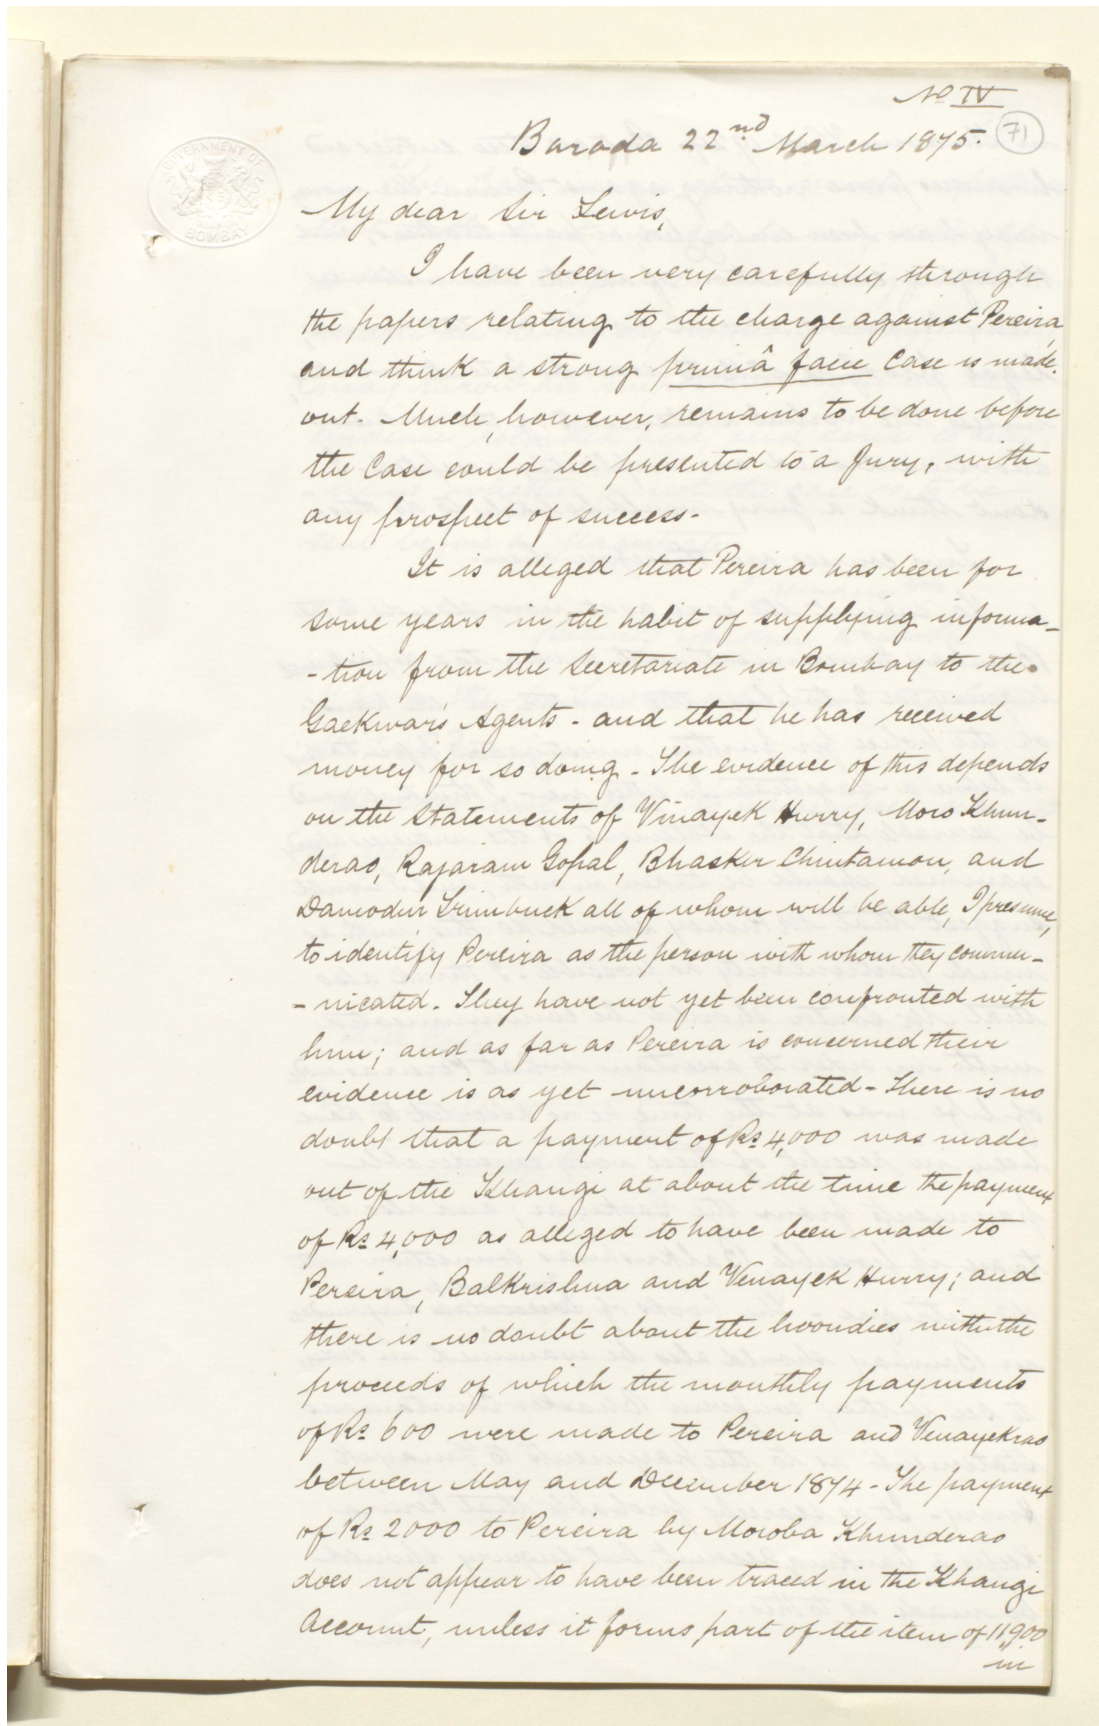 No IV
71
Baroda 22nd March 1875.
GOVERNMENT OF
BOMBAY
My dear Sir Lewis,
I have been very carefully through
the papers relating to the charge against Pereira,
and think a strong primâ facie Case is made
out. Much, however, remains to be done before
the Case could be presented to a Jury, with
any prospect of success.
It is alleged that Pereira has been for
some years in the habit of supplying informa-
-tion from the Secretariate in Bombay to the
Gaekwar's Agents - and that he has received
money for so doing - The evidence of this depends
on the Statements of Vinayek Hurry, Moro Khun-
derao, Rajaram Gopal, Bhasker Chintamon, and
Damodur Trimbuck all of whom will be able, I presume,
to identify Pereira as the person with whom they commu-
-nicated. They have not yet been confronted with
him; and as far as Pereira is concerned their
evidence is as yet uncorroborated - There is no
doubt that a payment of Rs 4,000 was made
out of the Khangi at about the time the payment
of Rs 4,000 as alleged to have been made to
Pereira, Balkrishna and Venayek Hurry; and
there is no doubt about the hoondies with the
proceeds of which the monthly payments
of Rs 600 were made to Pereira and Venayekrao
between May and December 1874 - The payment
of Rs 2000 to Pereira by Moroba Khunderao
does not appear to have been traced in the Khangi
Account, unless it forms part of the item of 11,900
in